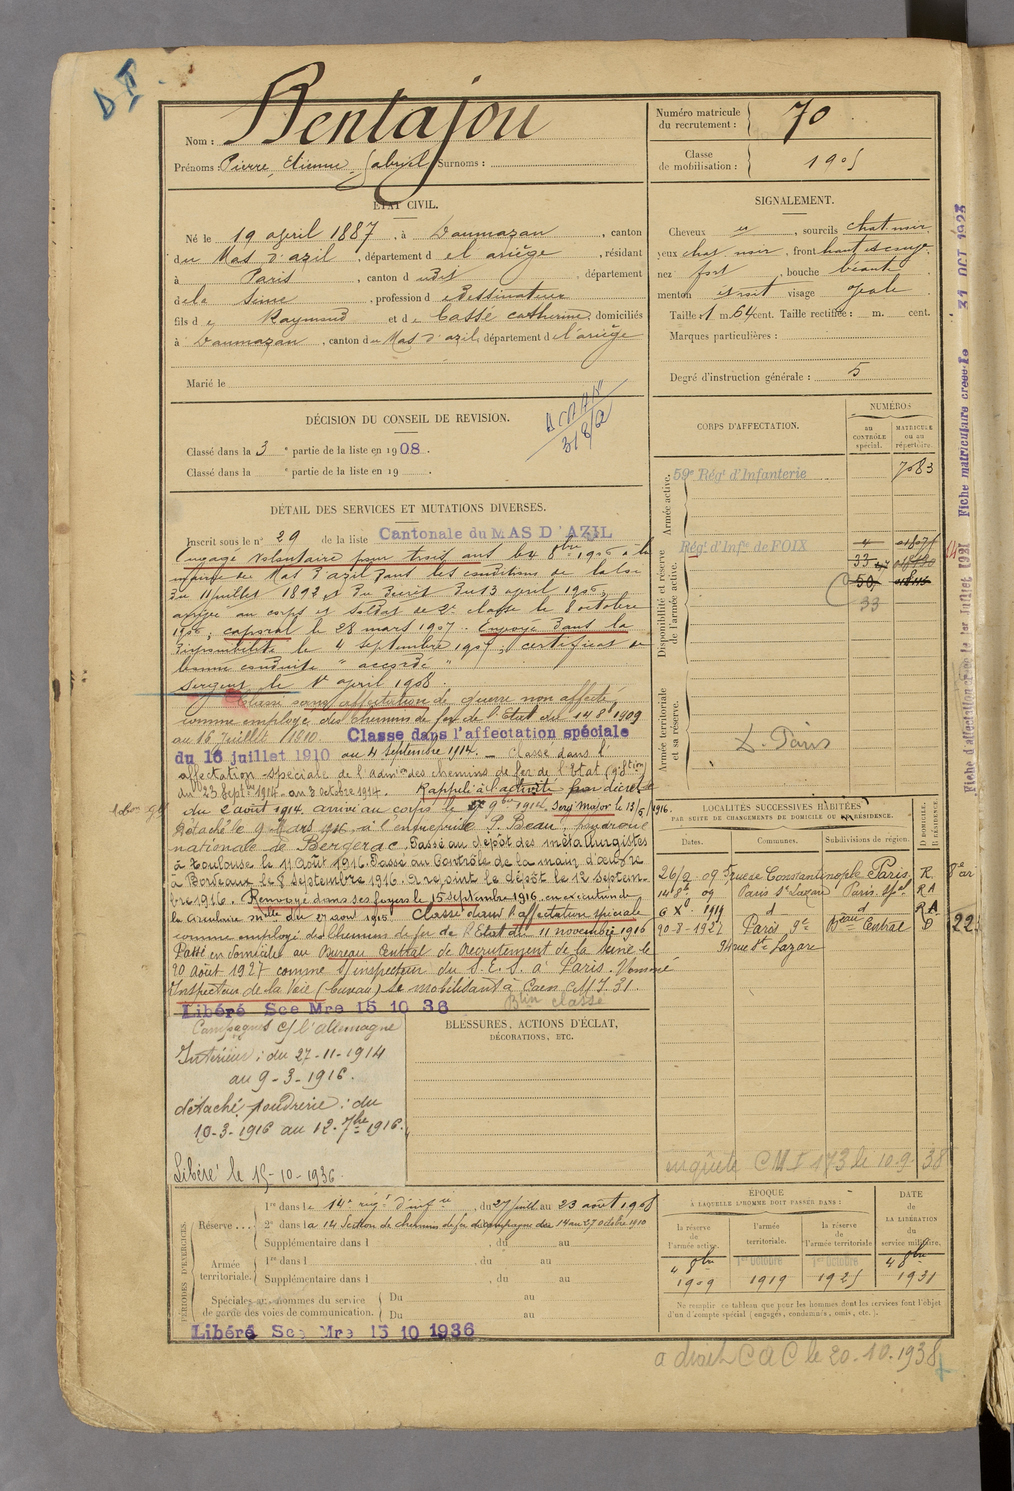 D I
Nom : Bentajou
Prénoms : Pierre, Etienne, Gabriel Surnoms :
Numéro matricule du recrutement : 70
Classe de mobilisation : 1905
ÉTAT CIVIL.
Né le 19 april 1887, à Daumazan, canton
du Mas d'azil, département d el ariège, résidant
à Paris, canton d udit, département
dela Seine, profession d e Dessinateur
fils d e Raymond et d e Cassé Catherine, domiciliés
à Daumazan, canton du Mas d'azil, département de l'ariège
Marié le
SIGNALEMENT.
Cheveux et, sourcils chat. noir
yeux chat. noir, front haut
nez fort, bouche béante
menton étroit visage ovale
Taille : 1 m. 64 cent. Taille rectifiée : m. cent.
Marques particulières :
Degré d'instruction générale : 5
DÉCISION DU CONSEIL DE REVISION.
Classé dans la 3e partie de la liste en 1908.
Classé dans la e partie de la liste en 19 .
CORPS D'AFFECTATION.
NUMÉROS
au CONTRÔLE spécial.
MATRICULE ou au répertoire.
Armée active.
59e Rég.t d'Infanterie 7083
Disponibilité et réserve de l'armée active.
Rég.t d'Inf.ie de FOIX
33
50
33
Armée territoriale et sa réserve.
D. Paris
DÉTAIL DES SERVICES ET MUTATIONS DIVERSES.
Inscrit sous le no 29 de la liste Cantonale du MAS D'AZIL
Engagé volontaire pour trois ans le 4 8bre 1906 à la
mairie du Mas d'azil dans les conditions de la loi
du 11 juillet 1892 et du Decret du 13 april 1906,
arrivé au corps et soldat de 2e classe le 8 octobre
1906, caporal le 28 mars 1907. Envoyé dans la
disponibilité le 4 septembre 1907; certificat de
bonne conduite "accordé"
Sergent le 1er april 1908.
Classé sans affectation de guerre non affecté,
comme employé des Chemins de fer de l'Etat du 14 8e 1909
au 16 Juillet 1910. Classe dans l'affectation spéciale
du 16 juillet 1910 au 4 septembre 1914. — Classé dans l'
affectation spéciale de l'admion des chemins de fer de l'Etat (9e Son)
du 23 Septbre 1914 au 3 octobre 1914. Rappelé à l'activité par décret
du 2 août 1914. arrivé au corps le 27 9bre 1914. Sergt Major le 13/5/1916.
Détaché le 9 Mars 1916 à l'entreprise P. Beau, poudrerie
nationale de Bergerac. Passé au dépôt des métallurgistes
à Toulouse le 11 Août 1916. Passé au Contrôle de la main d'œuvre
à Bordeaux le 8 Septembre 1916. A rejoint le dépôt le 12 Septem-
bre 1916. Renvoyé dans ses foyers le 15 septembre 1916, en exécution de
la circulaire mlle du 27 aout 1915. Classé dans l'affectation spéciale
comme employé des Chemins de fer de l'Etat du 11 novembre 1916
Passé en domicile au Bureau Central de Recrutement de la Seine le
20 Août 1927 comme S/inspecteur du S.E.S. à Paris. Nommé
Inspecteur de la Voie (bureau) se mobilisant à Caen C.M.I. 31.
Libéré Sce Mre 15 10 36
Btin classé
Campagnes c/ l'allemagne
Intérieur : du 27-11-1914
au 9-3-1916.
détaché poudrerie : du
10-3-1916 au 12-7bre 1916.
Libéré le 15-10-1936.
BLESSURES, ACTIONS D'ÉCLAT,
DÉCORATIONS, ETC.
LOCALITÉS SUCCESSIVES HABITÉES
PAR SUITE DE CHANGEMENTS DE DOMICILE OU DE RÉSIDENCE.
Dates. Communes. Subdivisions de région. D DOMICILE. R RÉSIDENCE.
26/2.09 5, rue de Constantinople Paris R. 8e ar
14 8e 09 Paris St Lazare Paris. spal RA
6 Xe 1919 d d RA
20-8-1927 Paris 9e Beau Central D
34 rue St Lazare
enquête CMI 173 le 10.9.38
PÉRIODES D'EXERCICES.
Réserve . . . 1re dans le 14e rég.t d'inf ie, du 27 juil. au 23 août 1908
2e dans la 14 Section de chemins de fer de campagne du 14 au 27 octobre 1910
Supplémentaire dans l , du au
Armée territoriale. 1re dans l , du au
Supplémentaire dans l , du au
Spéciales aux hommes du service de garde des voies de communication. Du au
Du au
Libéré Sce Mre 15 10 1936
EPOQUE
À LAQUELLE L'HOMME DOIT PASSER DANS :
la réserve de l'armée active.
l'armée territoriale.
la réserve de l'armée territoriale
DATE DE LA LIBÉRATION du service militaire.
4 8bre 1909
1er Octobre 1919
1er Octobre 1925
4 8bre 1931
Ne remplir ce tableau que pour les hommes dont les services font l'objet
d'un décompte spécial (engagés, condamnés, omis, etc.).
a droit C A C le 20.10.1938
Fiche matriculaire créée le 31 OCT 1923